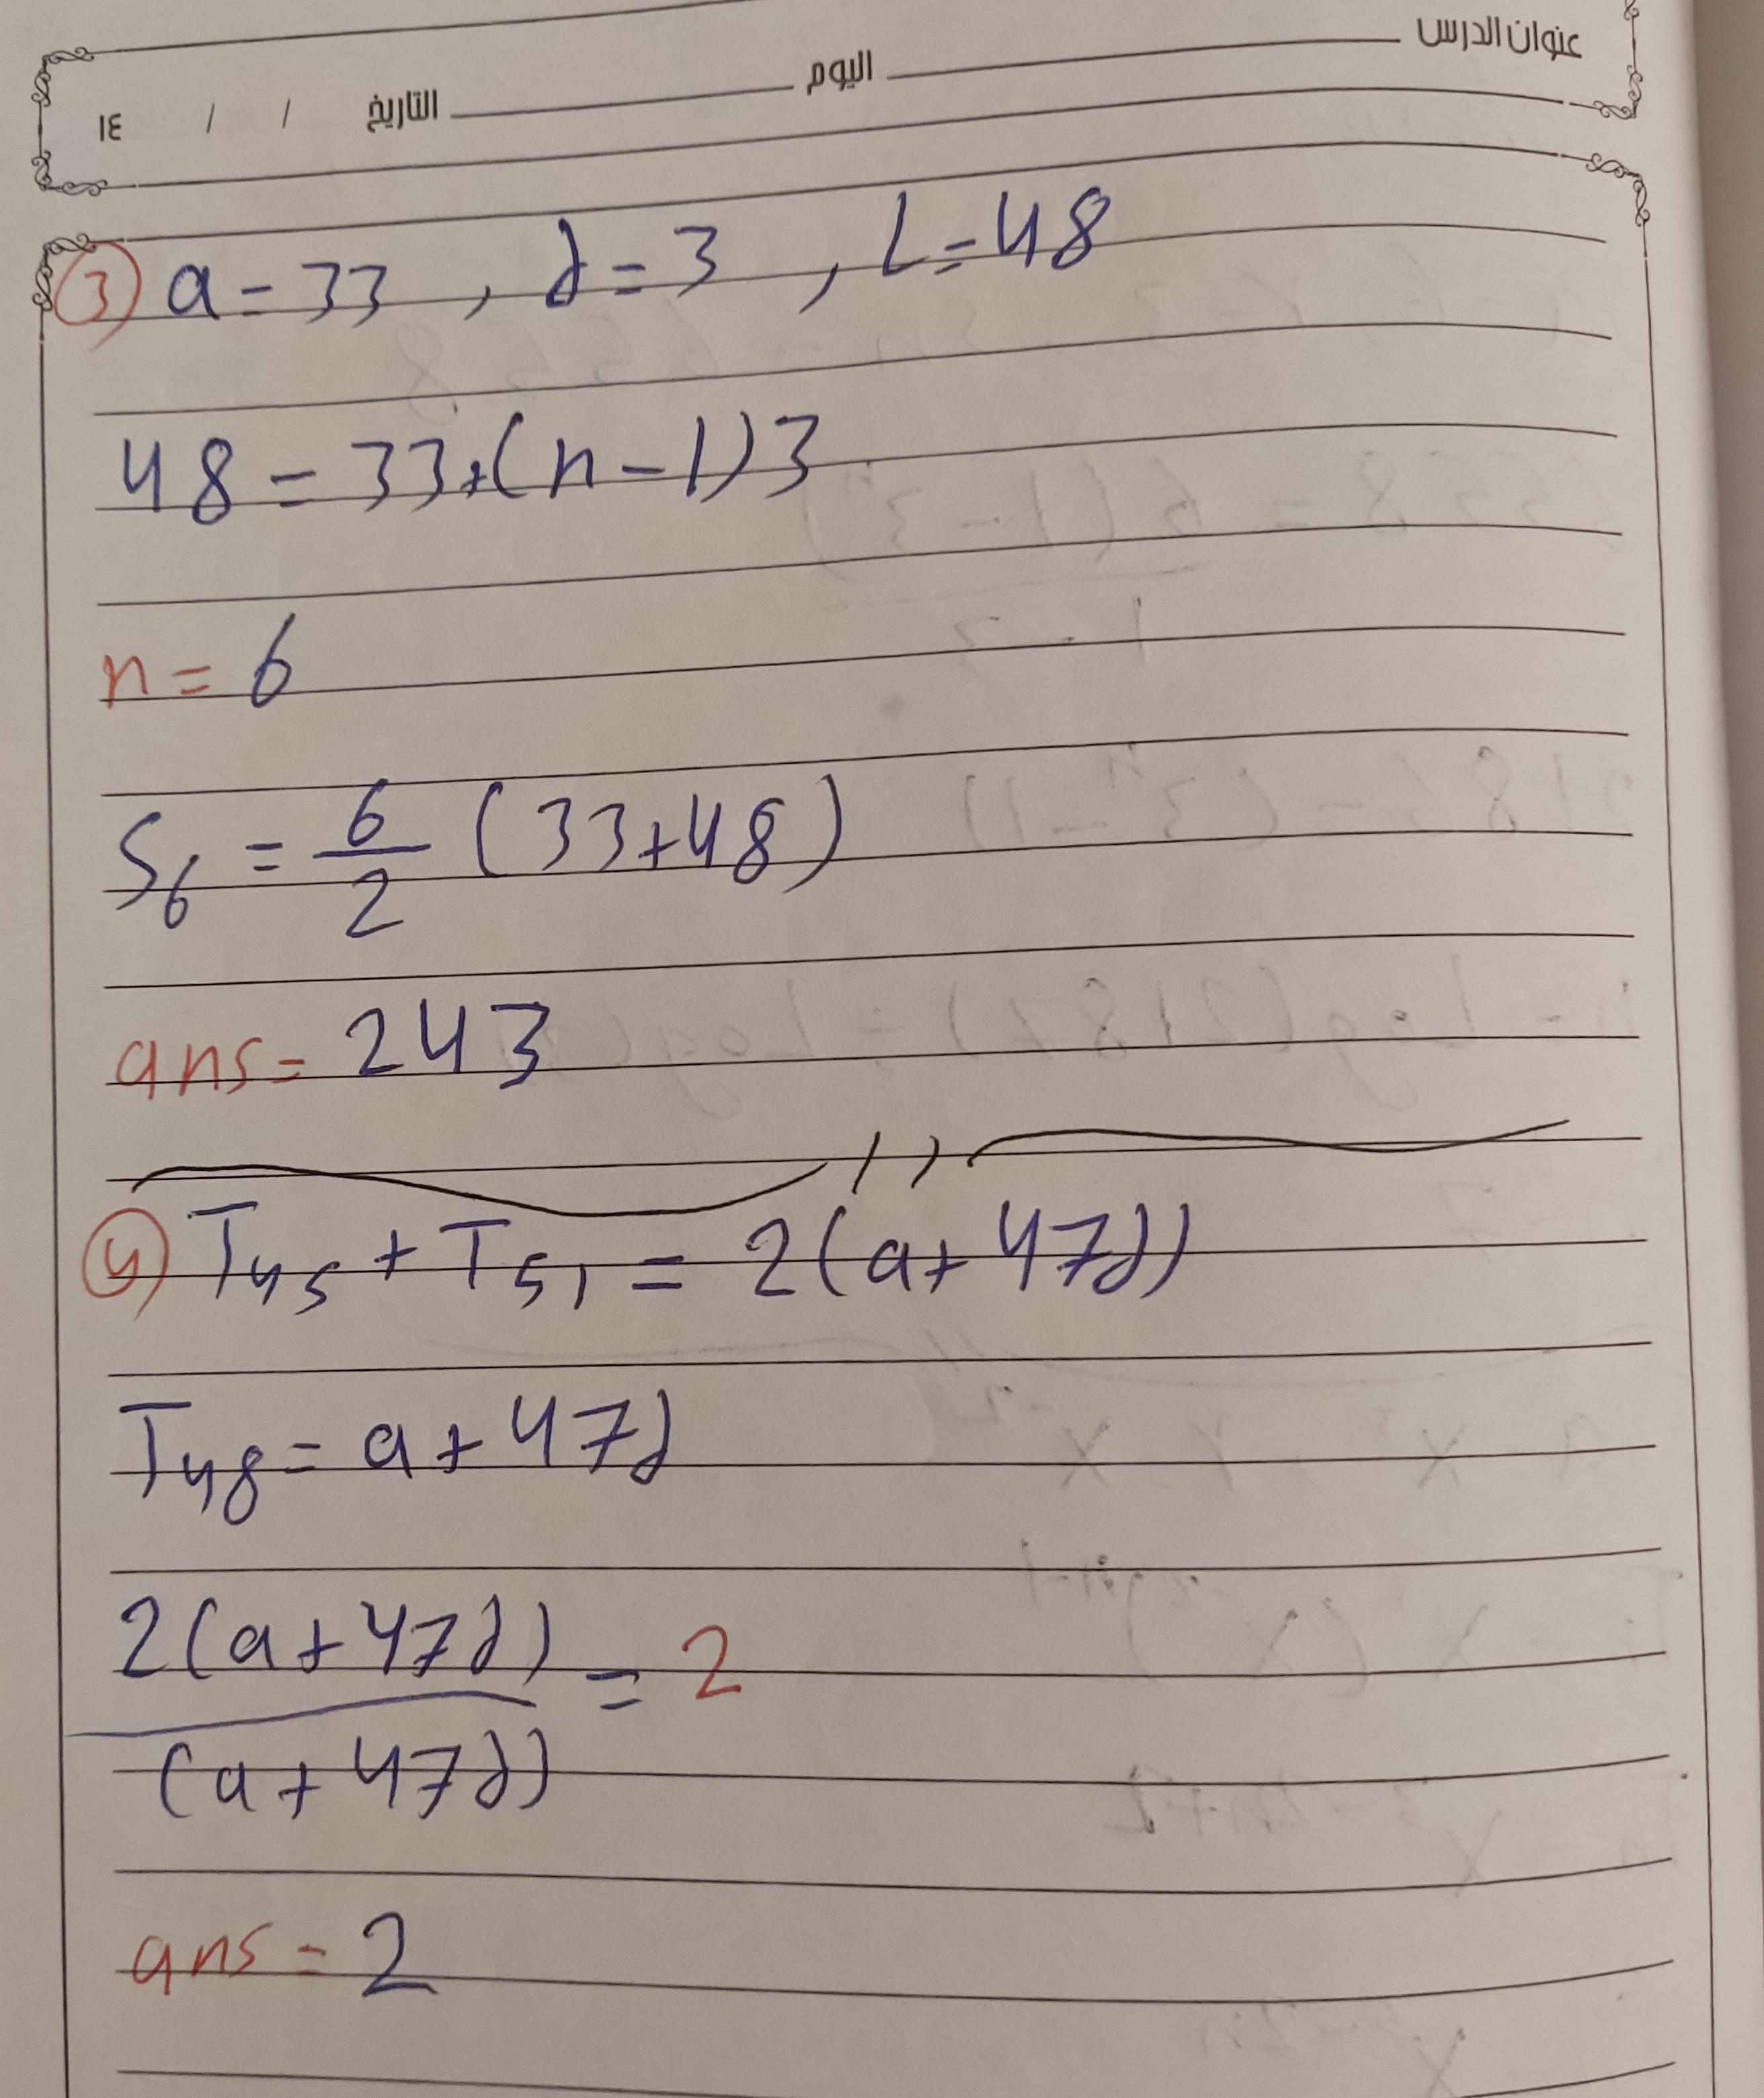 عنوان الدرس اليوم التاريخ / / ١٤
③ a = 33 , d = 3 , L = 48
48 = 33 + (n - 1) 3
n = 6
S₆ = 6/2 (33 + 48)
ans = 243
④ T₄₅ + T₅₁ = 2(a + 47d)
T₄₈ = a + 47d
2(a + 47d) / (a + 47d) = 2
ans = 2